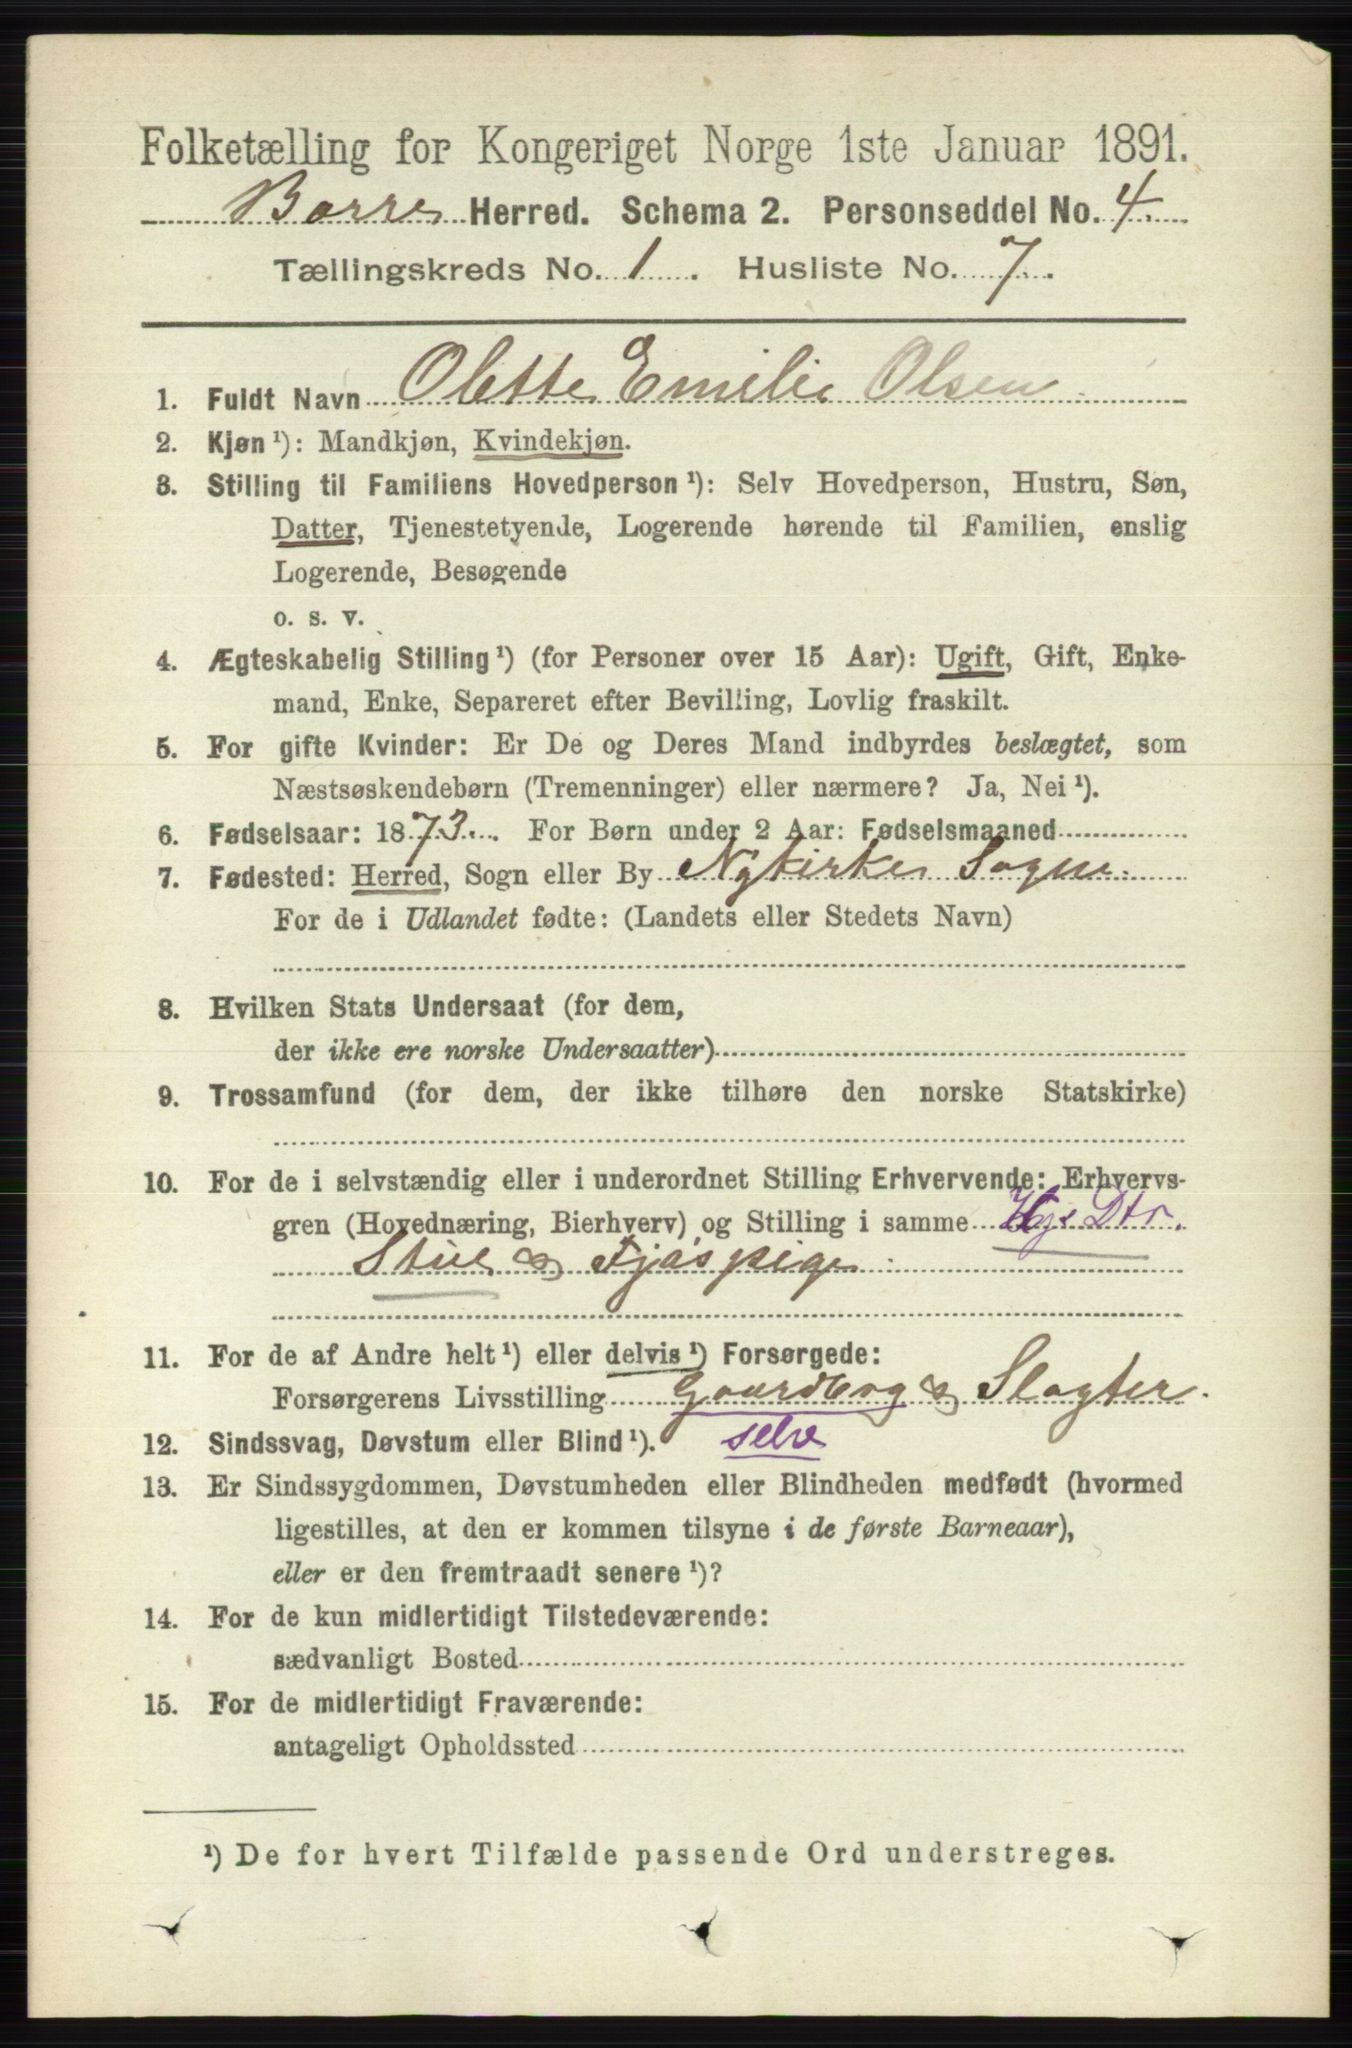 Folketælling for Kongeriget Norge 1ste Januar 1891.
Borre Herred. Schema 2. Personseddel No. 4.
Tællingskreds No. 1. Husliste No. 7.
1. Fuldt Navn Olette Emilie Olsen
2. Kjøn ¹): Mandkjøn, Kvindekjøn.
3. Stilling til Familiens Hovedperson ¹): Selv Hovedperson, Hustru, Søn,
Datter, Tjenestetyende, Logerende hørende til Familien, enslig
Logerende, Besøgende
o. s. v.
4. Ægteskabelig Stilling ¹) (for Personer over 15 Aar): Ugift, Gift, Enke-
mand, Enke, Separeret efter Bevilling, Lovlig fraskilt.
5. For gifte Kvinder: Er De og Deres Mand indbyrdes beslægtet, som
Næstsøskendebørn (Tremenninger) eller nærmere? Ja, Nei ¹).
6. Fødselsaar: 1873. For Børn under 2 Aar: Fødselsmaaned
7. Fødested: Herred, Sogn eller By Nykirke Sogn.
For de i Udlandet fødte: (Landets eller Stedets Navn)
8. Hvilken Stats Undersaat (for dem,
der ikke ere norske Undersaatter)
9. Trossamfund (for dem, der ikke tilhøre den norske Statskirke)
10. For de i selvstændig eller i underordnet Stilling Erhvervende: Erhvervs-
gren (Hovednæring, Bierhverv) og Stilling i samme Hj. Dtr.
Stue & Fjøspige
11. For de af Andre helt ¹) eller delvis ¹) Forsørgede:
Forsørgerens Livsstilling Gaardbrug & Slagter.
12. Sindssvag, Døvstum eller Blind ¹). selv
13. Er Sindssygdommen, Døvstumheden eller Blindheden medfødt (hvormed
ligestilles, at den er kommen tilsyne i de første Barneaar),
eller er den fremtraadt senere ¹)?
14. For de kun midlertidigt Tilstedeværende:
sædvanligt Bosted
15. For de midlertidigt Fraværende:
antageligt Opholdssted
¹) De for hvert Tilfælde passende Ord understreges.